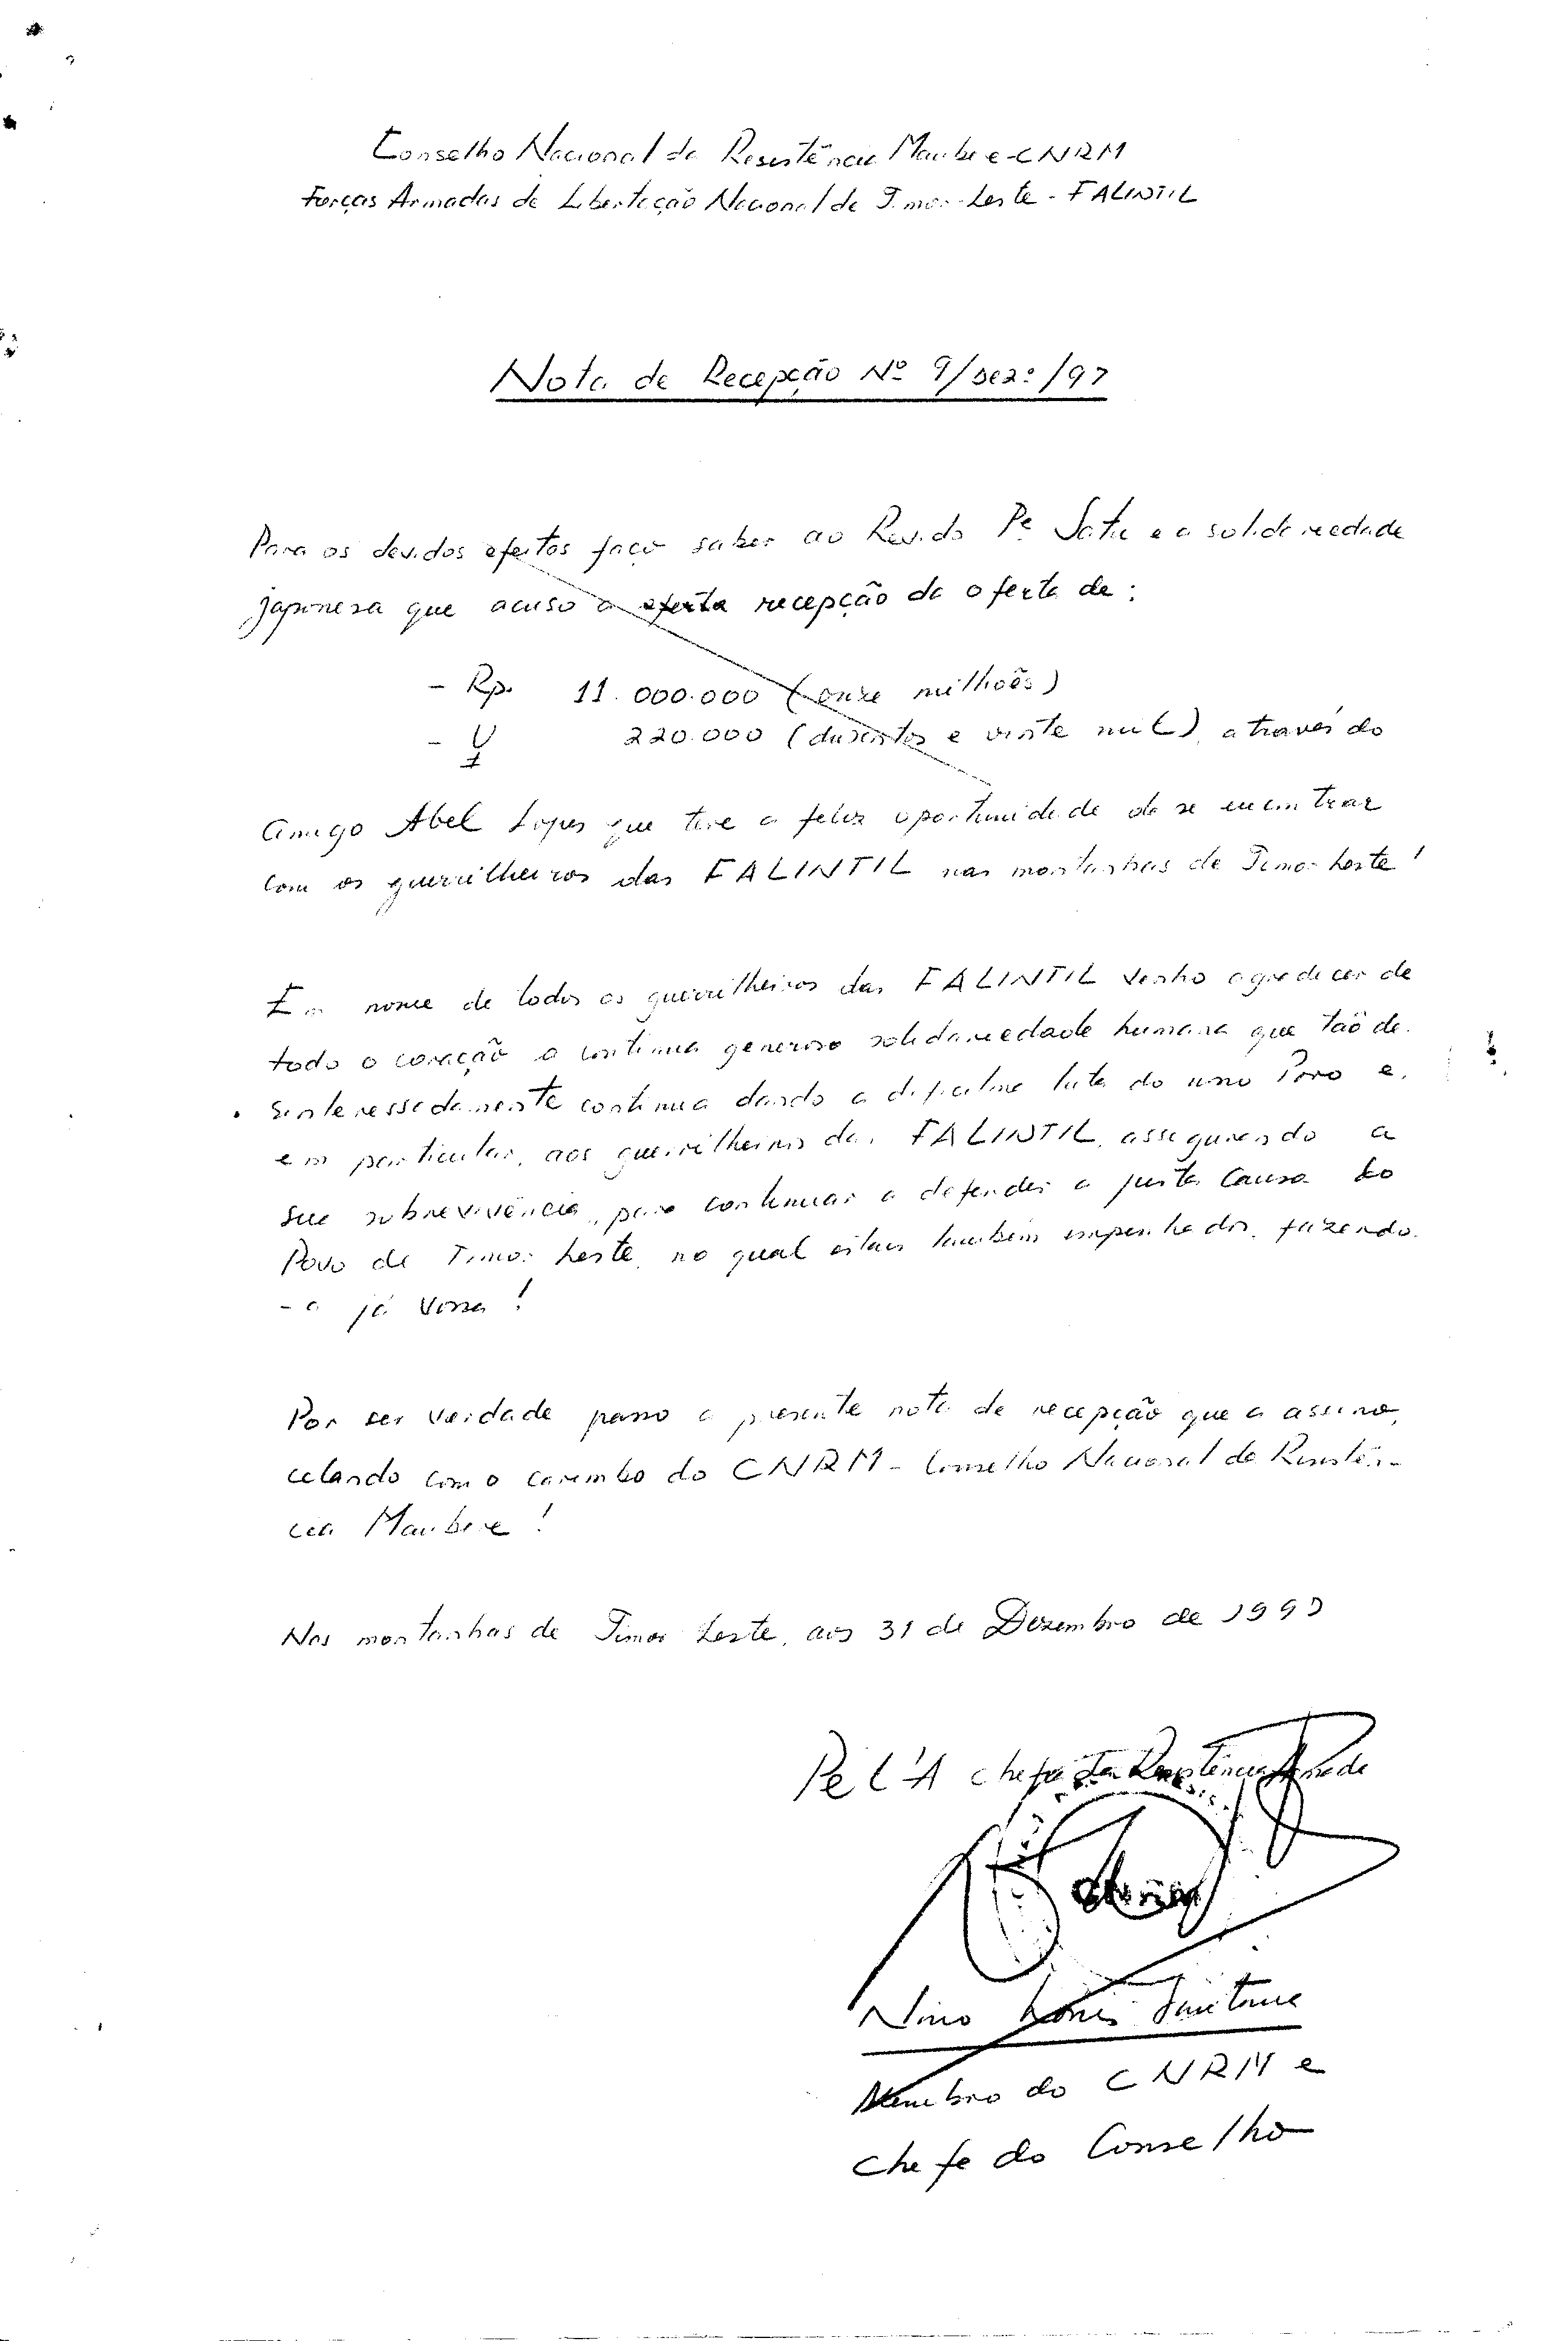 Conselho Nacional da Resistência Maubere-CNRM
Forças Armadas de Libertação Nacional de Timor-Leste - FALINTIL
Nota de Recepção Nº 9/Dezº/97
Para os devidos efeitos faço saber ao Revdo Pe a solidariedade
japonesa que acuso a oferta recepção da oferta de:
- Rp. 11.000.000 (onze milhões)
- ¥ 220.000 (duzentos e vinte mil), através do
amigo Abel Lopes que teve a feliz oportunidade de se encontrar
com os guerrilheiros das FALINTIL nas montanhas de Timor-Leste!
Em nome de todos os guerrilheiros das FALINTIL venho agradecer de
todo o coração a contínua generosa solidariedade humana que tão de-
sinteressadamente continua dando a difícil luta do nosso Povo e,
em particular, aos guerrilheiros das FALINTIL, assegurando a
sua sobrevivência, para continuar a defender a justa Causa do
Povo de Timor Leste, no qual estais também empenhados, fazendo-
-a já Vossa!
Por ser verdade passo a presente nota de recepção que a assino,
celando com o carimbo do CNRM - Conselho Nacional da Resistên-
cia Maubere!
Nas montanhas de Timor Leste, aos 31 de Dezembro de 1997
Pel'A Chefia da Resistência Armada
Nino Konis Santana
Membro do CNRM e
Chefe do Conselho